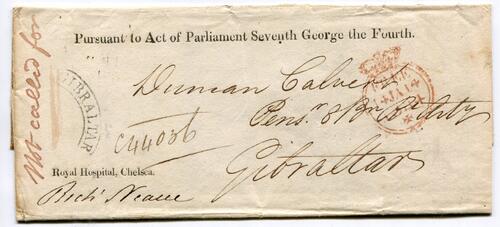 Pursuant to Act of Parliament Seventh George the Fourth.
Not called for
GIBRALTAR
Duncan Calvert
Pensr 8 Bn Arty
FREE
JA 14
C44036
Gibraltar
Royal Hospital, Chelsea.
Richd Neave